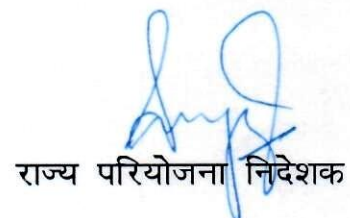 राज्य परियोजना निदेशक